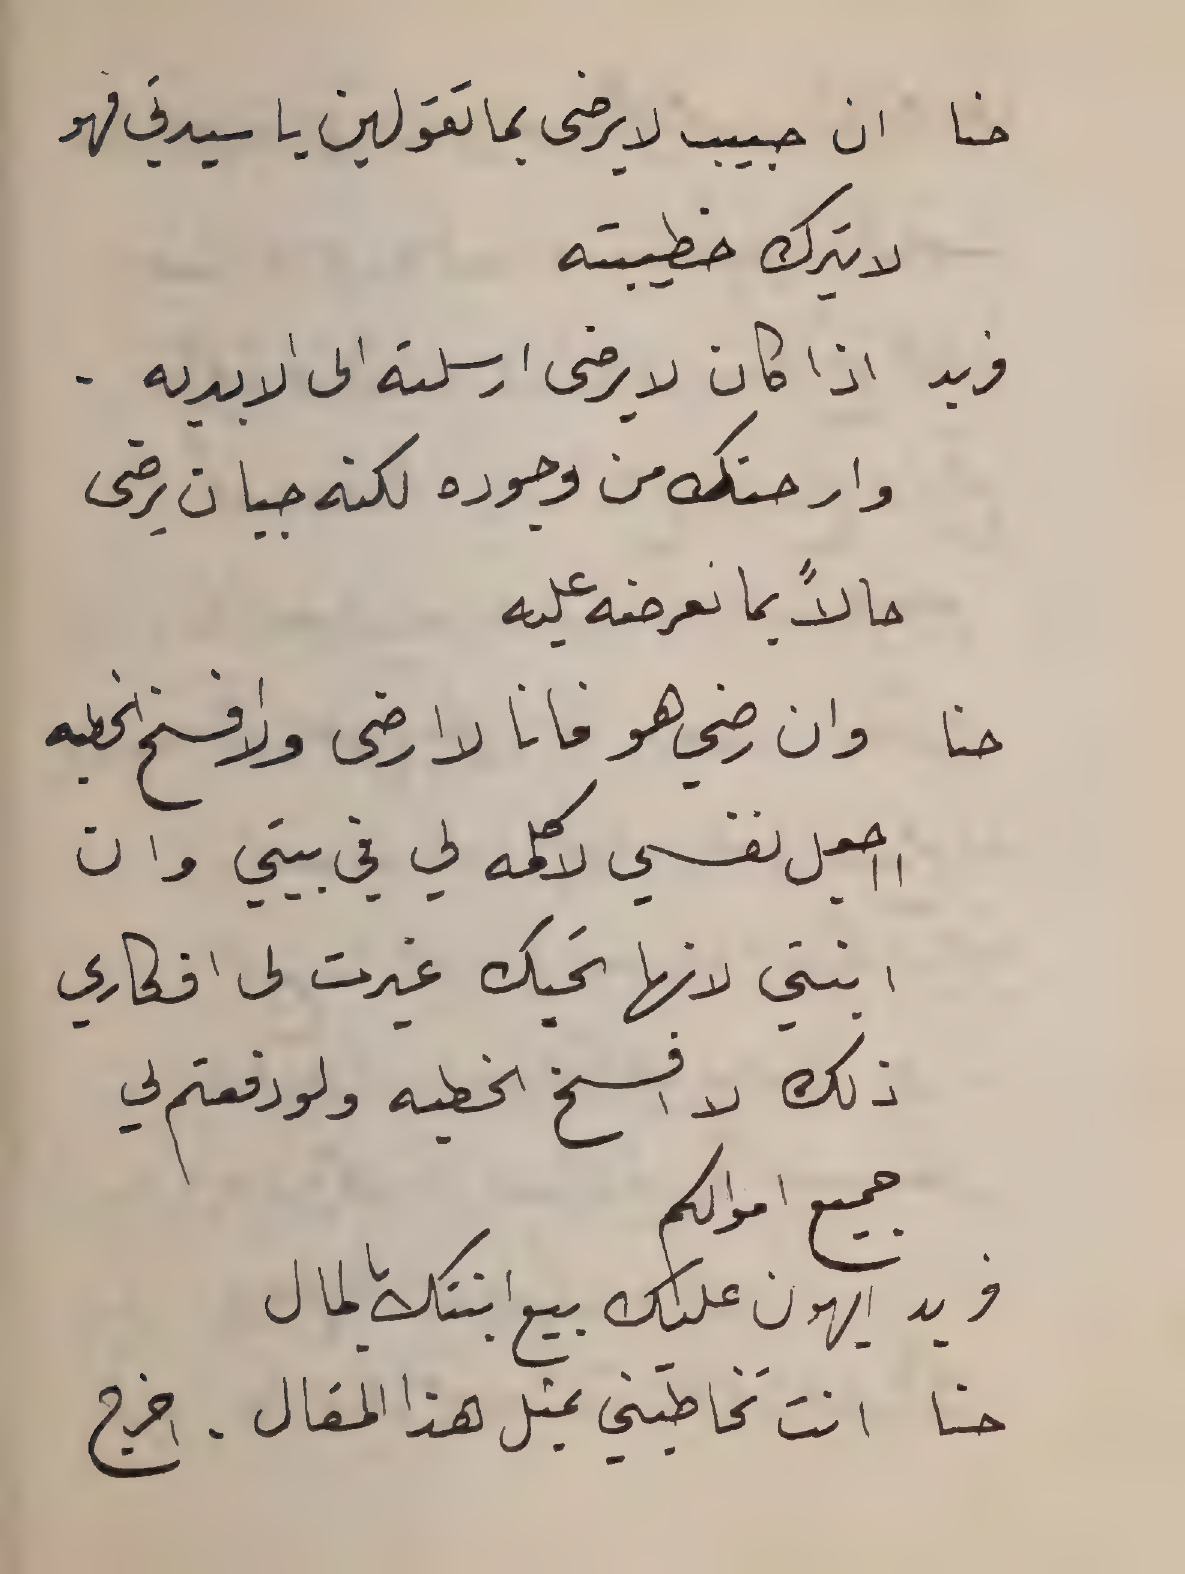 حنا ان حبيب لا يرضى بما تقولين يا سيدتي فهو
لا يترك خطيبته
فريد اذا كان لا يرضى ارسلته الى الابديه .
وارحتك من وجوده لكنه جبان يرضى
حالاً بما نعرضه عليه
حنا وان رضي هو فانا لا ارضى ولا افسخ الخطبه
ااجعل نفسي لا كلمه لي في بيتي وان
ابنتي لانها تحبك غيرت لى افكاري
ذلك لا افسخ الخطبه ولو دفعتم لي
جميع اموالكم
فريد ايهون عليك بيع ابنتك بالمال
حنا انت تخاطبني بمثل هذا المقال . اخرج